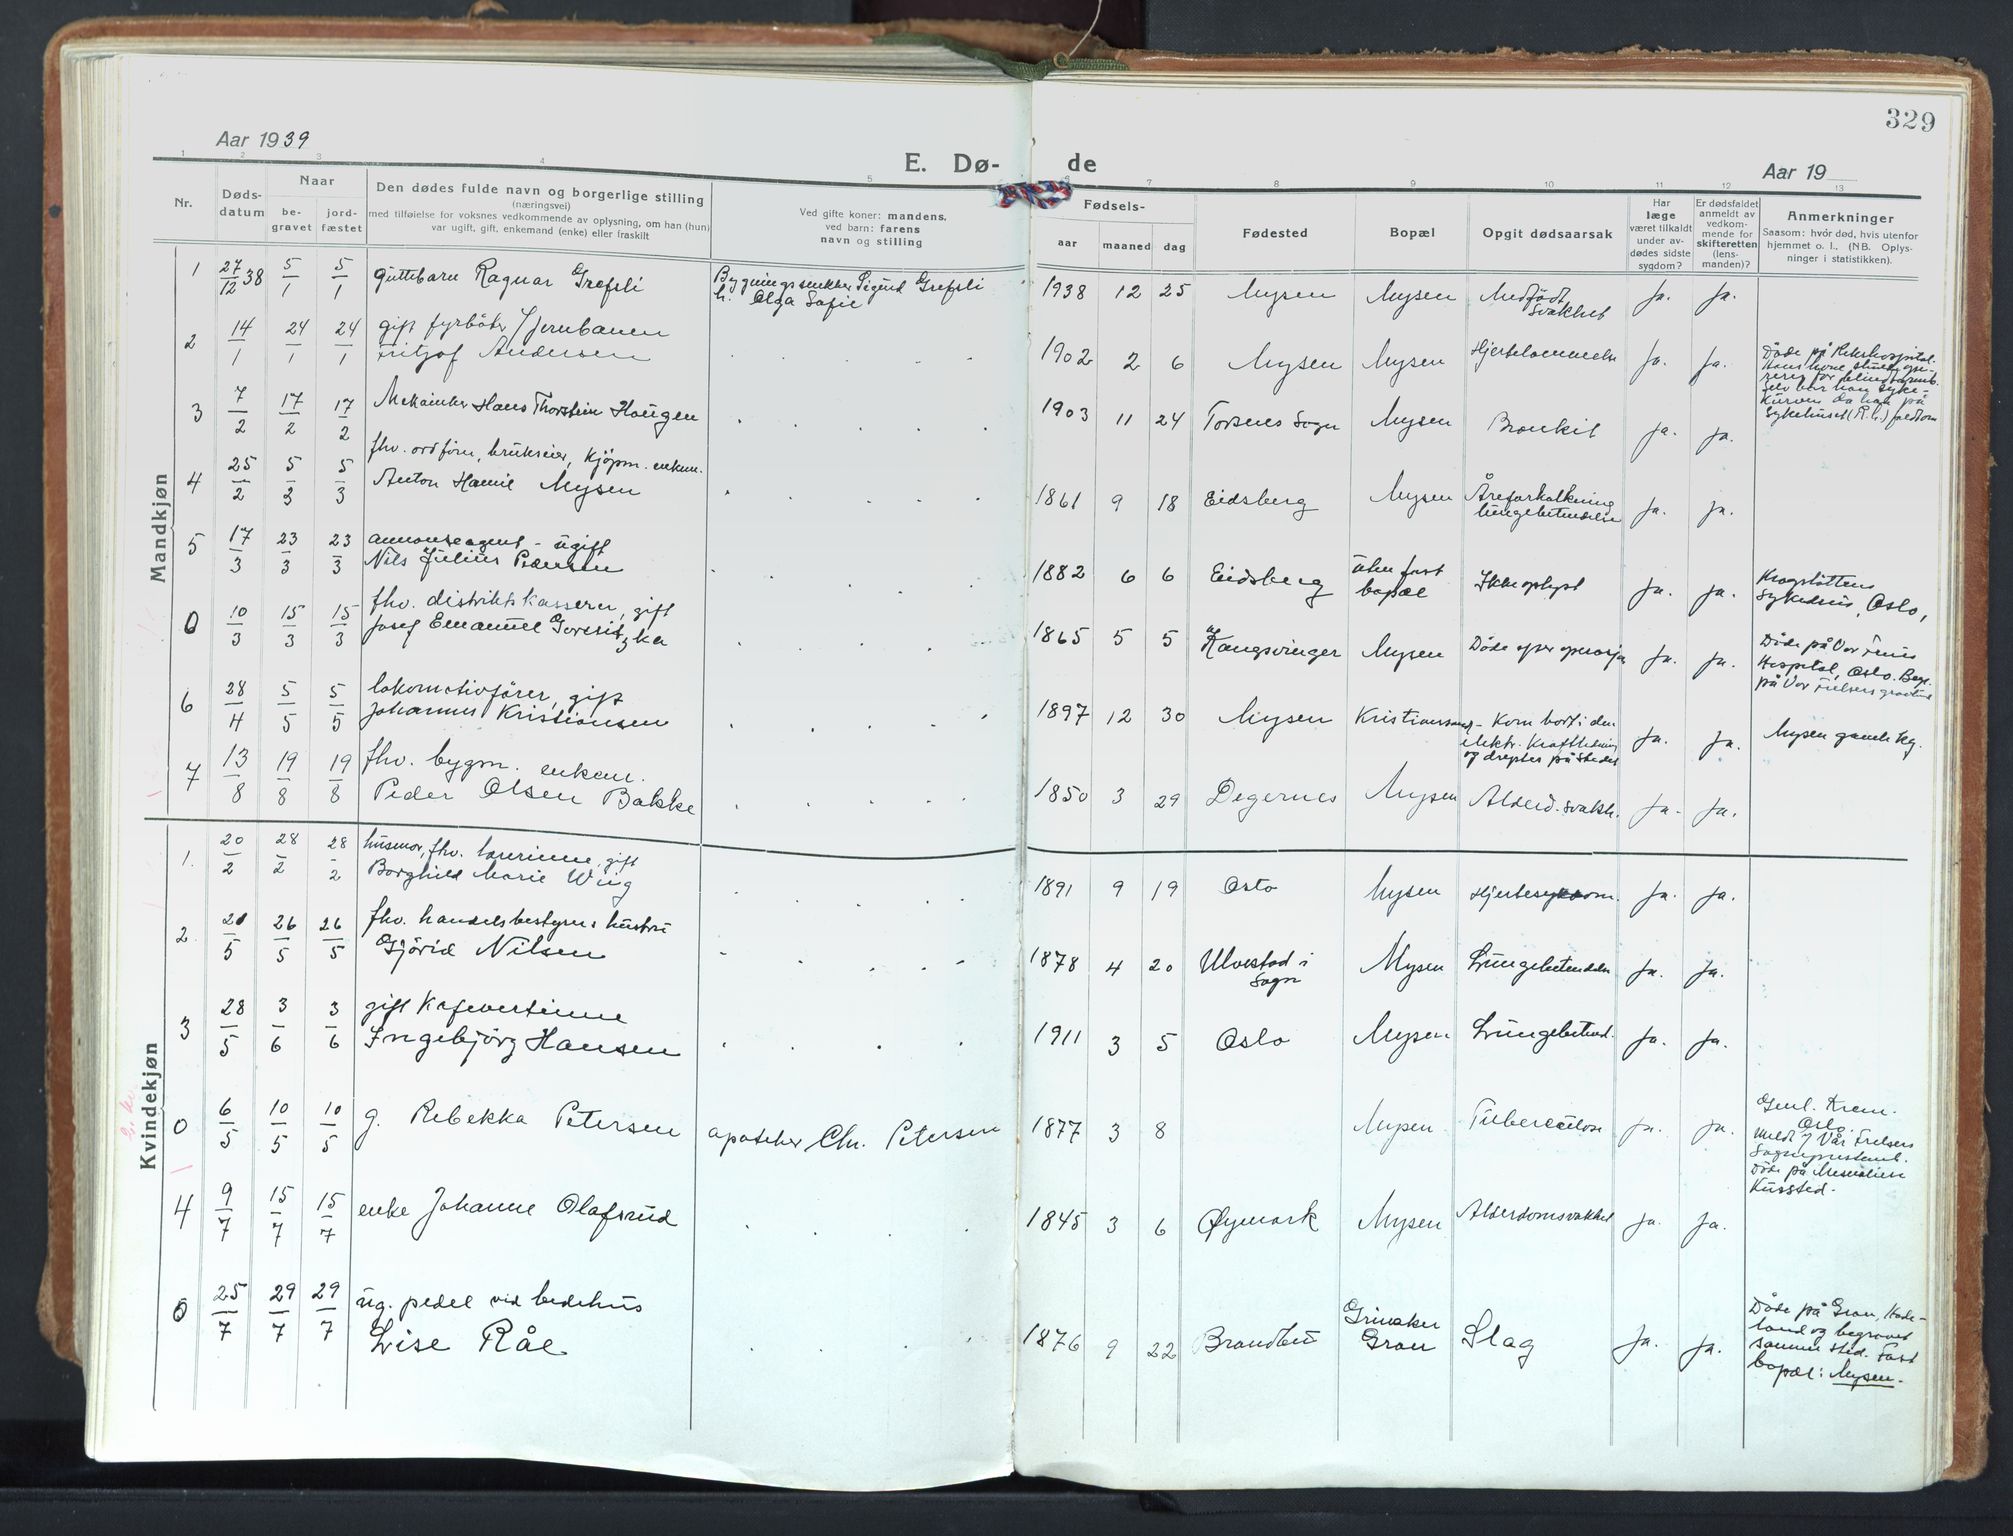 329
Aar 1939
E. Dø-
de
Aar 19
1 2 3 4 5 7 8 9 10 11 12 13
Nr.
Døds-
datum
Naar
be-
gravet
jord-
fæstet
Den dødes fulde navn og borgerlige stilling
(næringsvei)
med tilføielse for voksnes vedkommende av oplysning, om han (hun)
var ugift, gift, enkemand (enke) eller fraskilt
Ved gifte koner: mandens,
ved barn: farens
navn og stilling
Fødsels-
aar
maaned
dag
Fødested
Bopæl
Opgit dødsaarsak
Har
læge
været tilkaldt
under av-
dødes sidste
sygdom?
Er dødsfaldet
anmeldt av
vedkom-
mende for
skifteretten
(lens-
manden)?
Anmerkninger
Saasom: hvór død, hvis utenfor
hjemmet o. l., (NB. Oplys-
ninger i statistikken).
Mandkjøn
1 27/12 38 5/1 5/1 guttebarn Ragnar Grefsli Bygningssnekker Sigurd Grefsli
h. Olga Sofie
1938 12 25 Mysen Mysen Medfödt
svakhet ja. ja.
2 14/1 24/1 24/1 gift fyrböter v/jernbanen
Fritjof Andersen
1902 2 6 Mysen Mysen Hjertelammelse ja. ja. Döde på Rikshospital.
3 7/2 17/2 17/2 Mekaniker Hans Thorstein Haugen
1903 11 24 Torsnes Sogn Mysen Bronkit ja. ja.
4 25/2 5/3 5/3 fhv. ordförer, brukseier, kjöpm. enkem.
Anton Mysen
1861 9 18 Eidsberg Mysen Åreforkalkning
lungebetendelse ja. ja.
5 17/3 23/3 23/3 annonseagent - ugift
Nils Julius Pedersen
1882 6 6 Eidsberg uten fast
bopæl Ikke oplyst ja. ja. Krogstöttens
Sykehus, Oslo,
0 10/3 15/3 15/3 fhv. distriktskasserer, gift
Josef Emanuel
1865 5 5 Kongsvinger Mysen Döde efter operasjon ja. ja. Döde på Vor Frues
Hospital, Oslo. Begr.
på Vor Frelsers gravlund
6 28/4 5/5 5/5 lokomotivförer, gift
Johannes Kristiansen
1897 12 30 Mysen Kristiansand - Kom bort i den
elektr. kraftledning
og dreptes på stedet ja. ja. Mysen gamle kg.
7 13/8 19/8 19/8 fhv. bygm. enkem.
Peder Olsen Bakke
1850 3 29 Degernes Mysen Alderd. svakh. ja. ja.
Kvindekjøn
1. 20/2 28/2 28/2 husmor, fhv. lærerinne, gift
Borghild Marie Wiig
1891 9 19 Oslo Mysen Hjertesykdom. ja. ja.
2. 21/5 26/5 26/5 fhv. handelsbestyrers hustru
Gjörid Nilsen
1878 4 20 Ulvestad i
Sogn Mysen Lungebetendelse ja. ja.
3 28/5 3/6 3/6 gift Kafevertinne
Ingebjörg Hansen
1911 3 5 Oslo Mysen Lungebetend. ja. ja.
0 6/5 10/5 10/5 g. Rebekka Petersen apoteker Chr. Petersen
1877 3 8 Mysen. Tuberculose ja. ja. Gml. Krem.
Oslo.
Meldt v/ Vår Frelsers
Sogneprestemb.
Döde på Mesnalien
Kursted.
4 9/7 15/7 15/7 enke Johanne Olafsrud
1845 3 6 Øymark Mysen Alderdomssvakhet ja. ja.
0 25/7 29/7 29/7 ug. pedel ved bedehus
Lise Råe
1876 9 22 Brandbu Grinaker
Gran Slag ja. ja. Döde på Gran, Hade-
land og begravet
sammesteds. Fast
bopæl: Mysen.